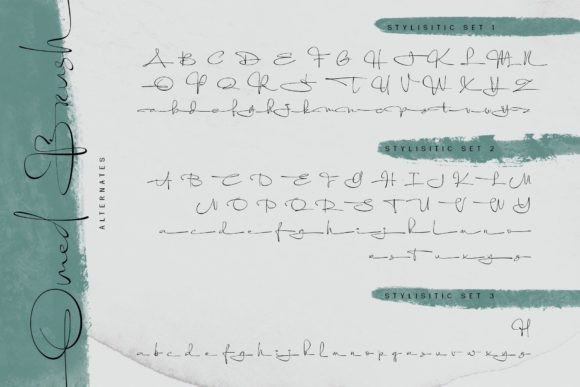 Omed Brush
ALTERNATES
STYLISITIC SET 1
A B C D E F G H I J K L M N
O P Q R S T U V W X Y Z
a b c d e f g h i j k l m n o p q r s t u v w x y z
STYLISITIC SET 2
A B C D E F G H I J K L M
N O P Q R S T U V W Y
a b c d e f g h i j k l m n o
STYLISITIC SET 3
H
a b c d e f g h i j k l m n o p q r s t u v w x y z